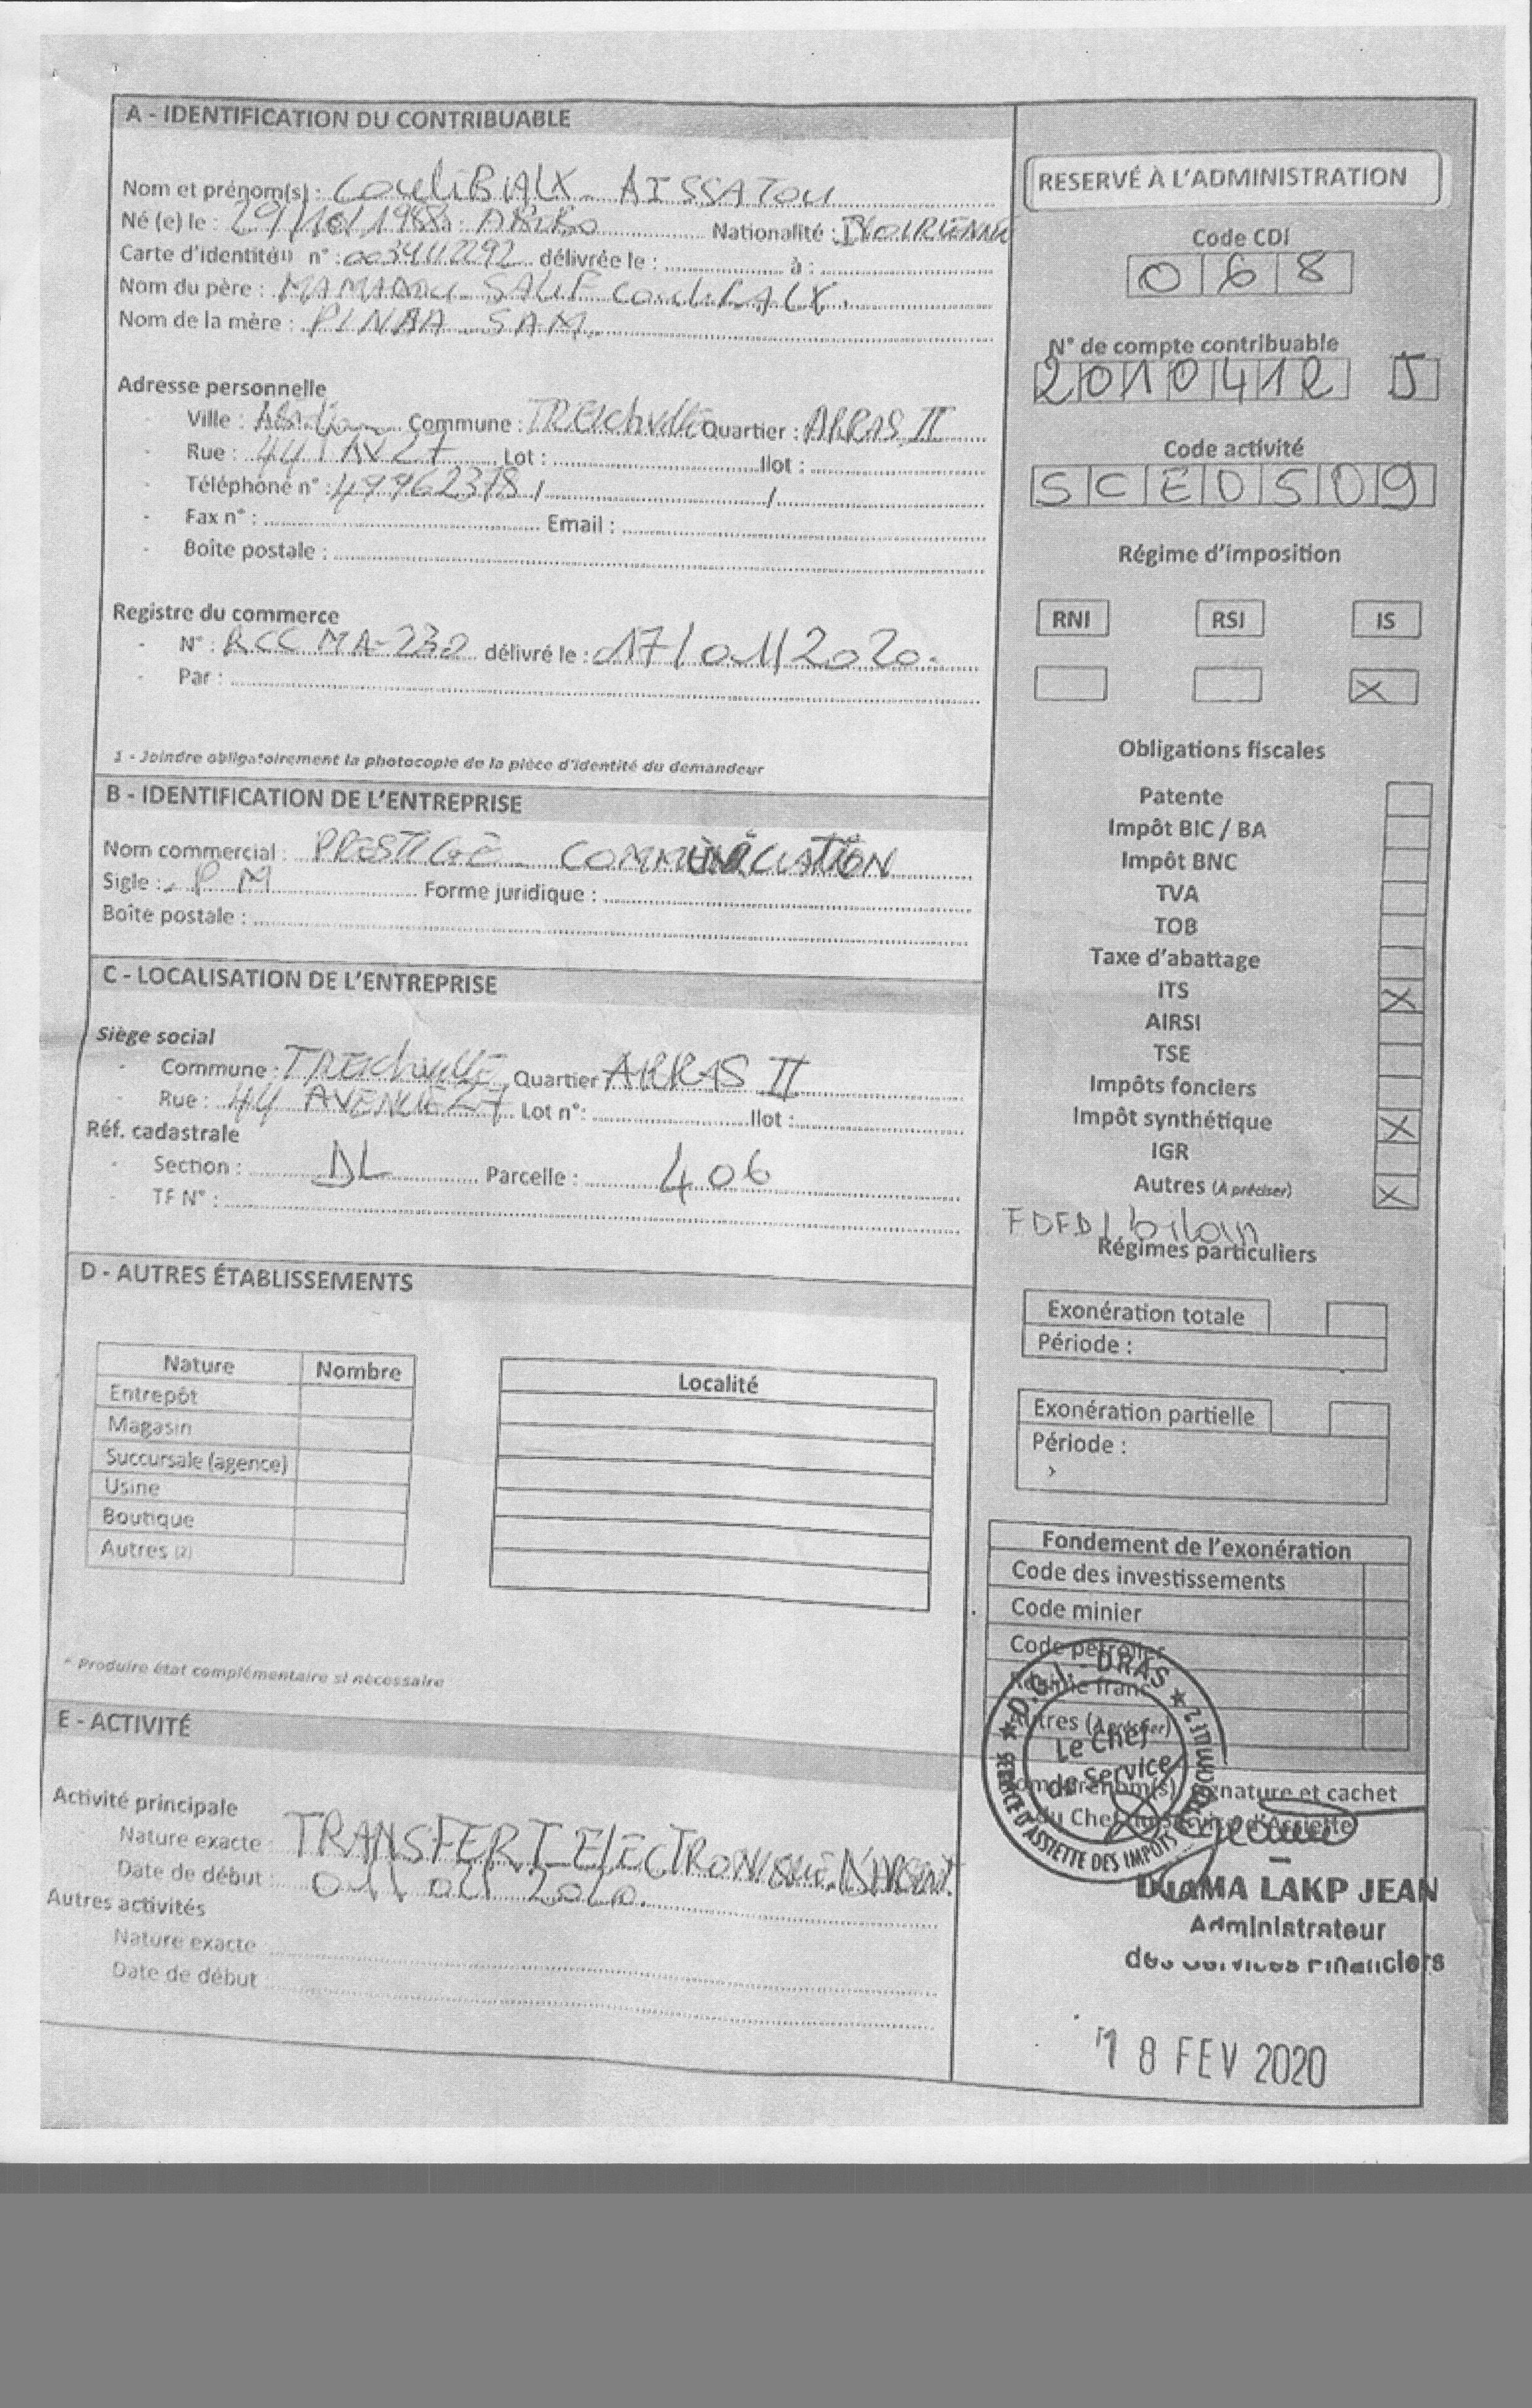 A - IDENTIFICATION DU CONTRIBUABLE
Nom et prénom(s) : COULIBALY AISSATOU
Né (e) le : 29/10/1988 à : Nationalité : IVOIRIENNE
Carte d'identité(1) n° : délivrée le : à :
Nom du père : MAMADOU SALIF COULIBALY
Nom de la mère : SAM
Adresse personnelle
- Ville : Abidjan Commune : TREICHVILLE Quartier : ARRAS II
- Rue : 44 / AV 27 Lot : Ilot :
- Téléphone n° : 49962378 / /
- Fax n° : Email :
- Boîte postale :
Registre du commerce
- N° : RCC MA-230 délivré le : 17/01/2020
- Par :
1 - Joindre obligatoirement la photocopie de la pièce d'identité du demandeur
B - IDENTIFICATION DE L'ENTREPRISE
Nom commercial : PRESTIGE COMMUNICATION
Sigle : P M Forme juridique :
Boîte postale :
C - LOCALISATION DE L'ENTREPRISE
Siège social
- Commune : TREICHVILLE Quartier ARRAS II
- Rue : 44 AVENUE 27 Lot n°: Ilot :
Réf. cadastrale
- Section : DL Parcelle : 406
- TF N° :
D - AUTRES ÉTABLISSEMENTS
Nature Nombre Localité
Entrepôt
Magasin
Succursale (agence)
Usine
Boutique
Autres (2)
* Produire état complémentaire si nécessaire
E - ACTIVITÉ
Activité principale
Nature exacte : TRANSFERT ELECTRONIQUE D'ARGENT.
Date de début : 01/01/2020.
Autres activités
Nature exacte :
Date de début :
RESERVÉ À L'ADMINISTRATION
Code CDI
0 6 8
N° de compte contribuable
2 0 1 0 4 1 2 J
Code activité
S C E D 5 0 9
Régime d'imposition
RNI RSI IS
X
Obligations fiscales
Patente
Impôt BIC / BA
Impôt BNC
TVA
TOB
Taxe d'abattage
ITS X
AIRSI
TSE
Impôts fonciers
Impôt synthétique X
IGR
Autres (A préciser) X
FDFD / bilan
Régimes particuliers
Exonération totale
Période :
Exonération partielle
Période :
Fondement de l'exonération
Code des investissements
Code minier
Code pétrolier
Régime franc
Autres (A préciser)
Nom, Prénom(s), signature et cachet
du Chef du Service d'Assiette
D.G.I. - DRAS
SERVICE D'ASSIETTE DES IMPOTS
Le Chef
de Service
DJAMA LAKP JEAN
Administrateur
des Services Financiers
18 FEV 2020